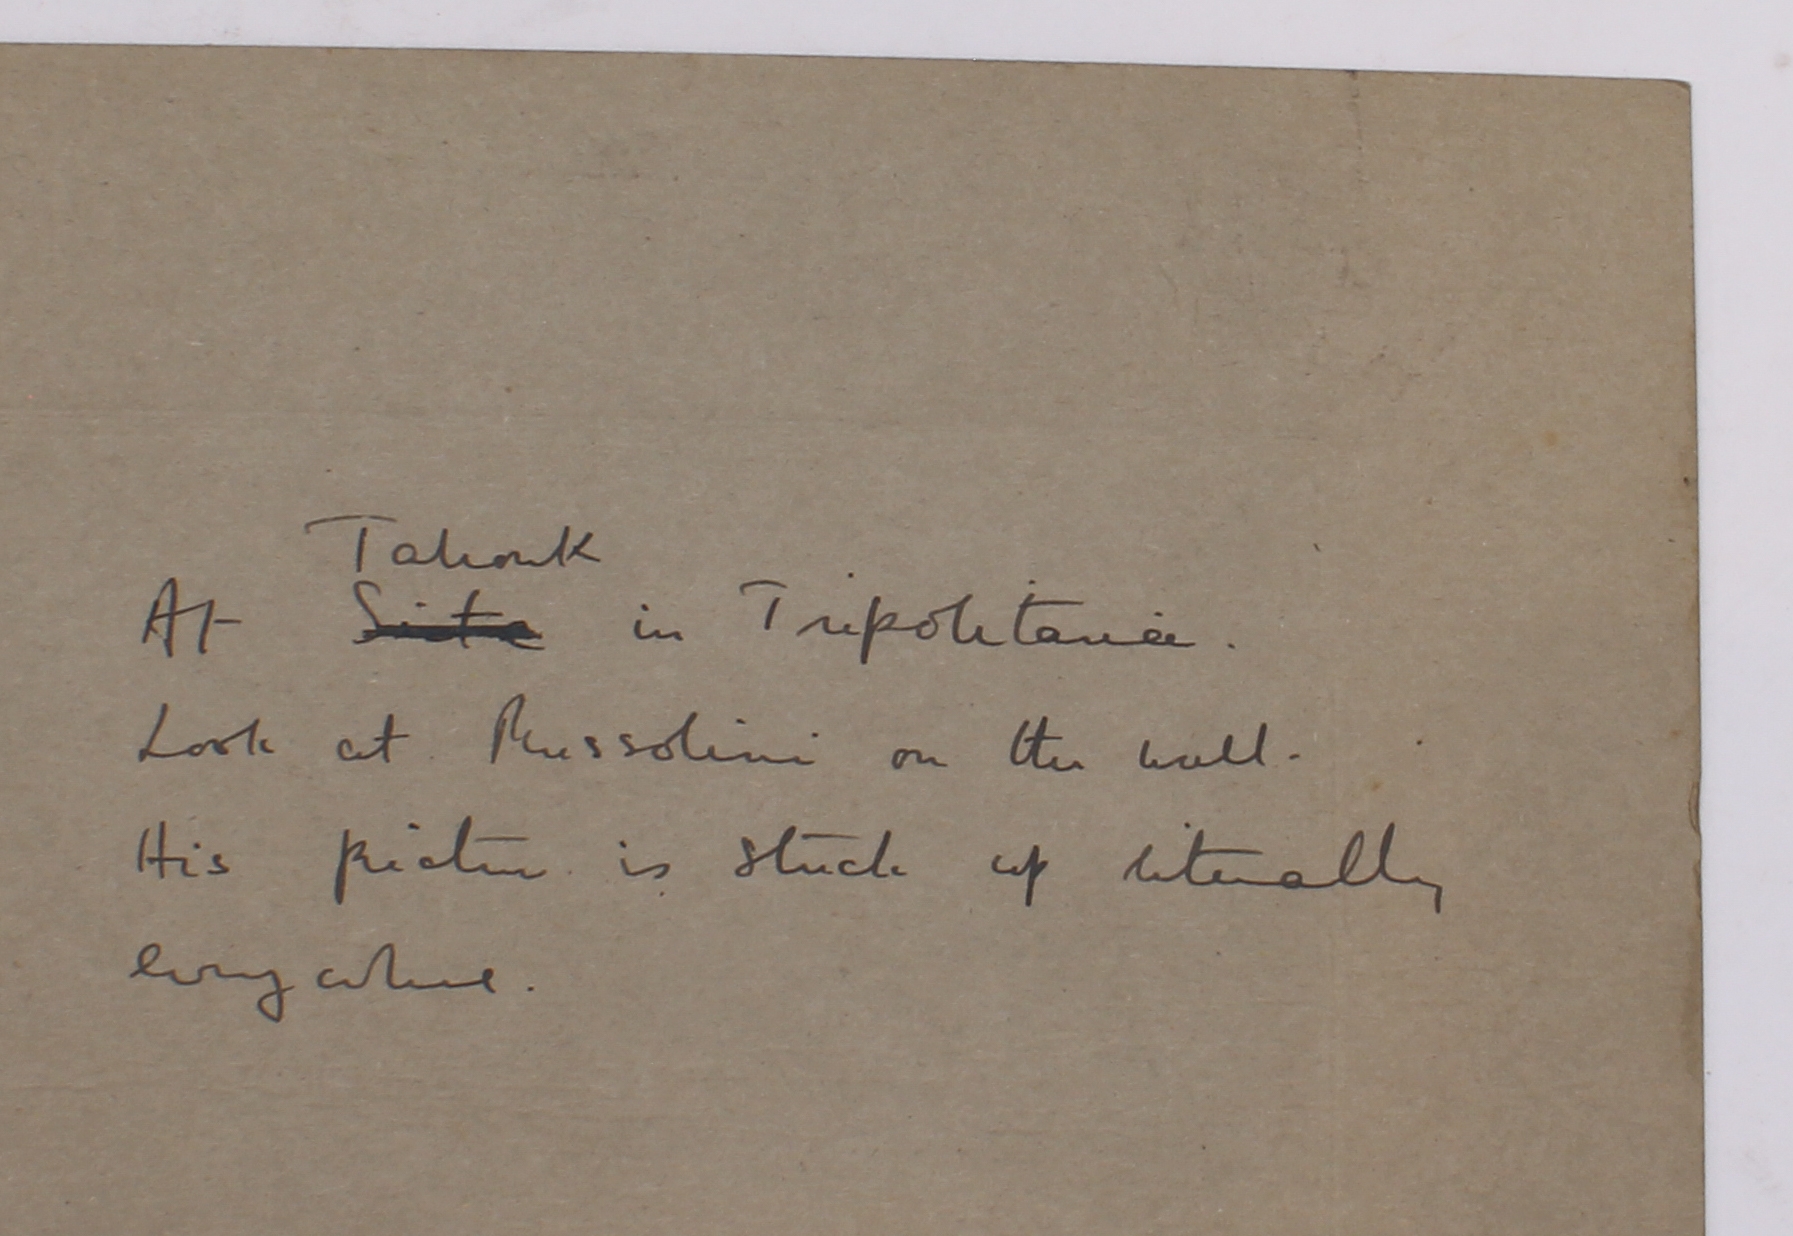 At Sirte in Tripolitania.
Look at Mussolini on the wall.
His picture is stuck up literally
everywhere.